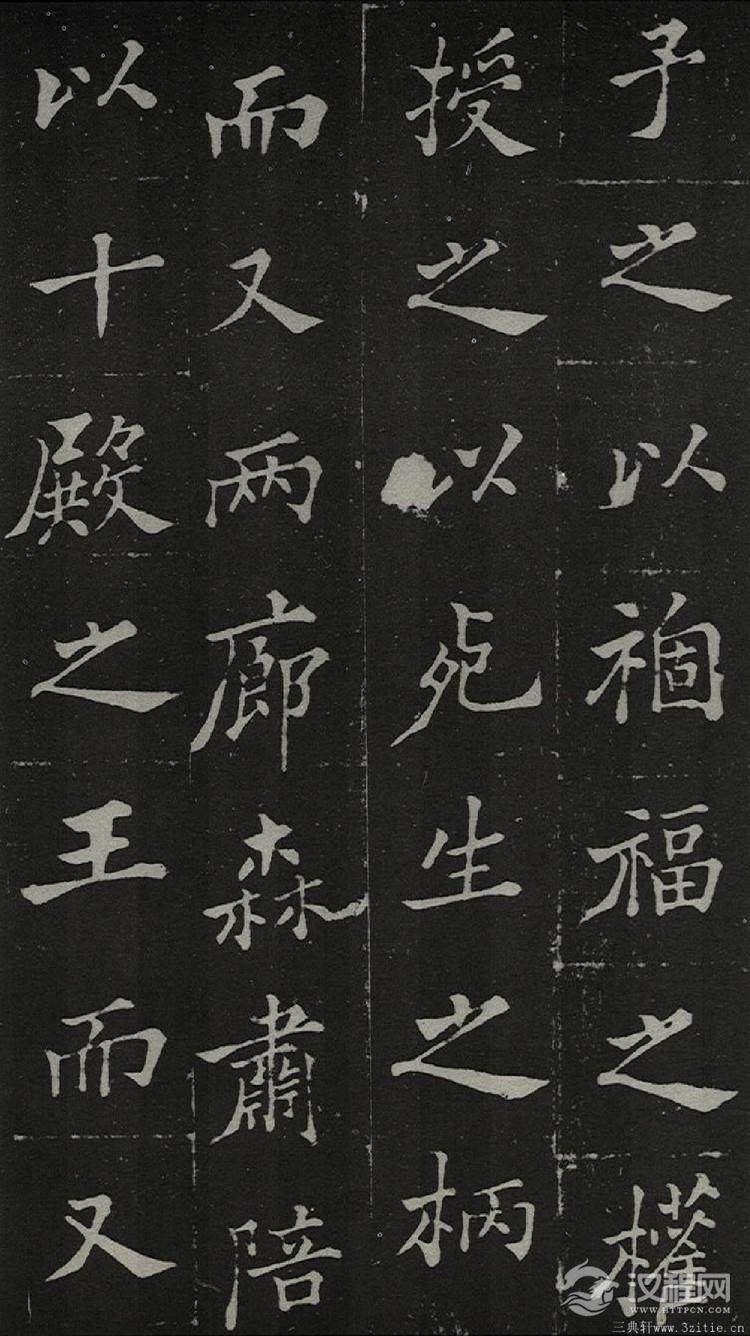 子之以禍福之權
授之以死生之柄
而又兩廊森肅陪
以十殿之王而又
汉程网
WWW.HTTPCN.COM
三典轩www.3zitie.cn